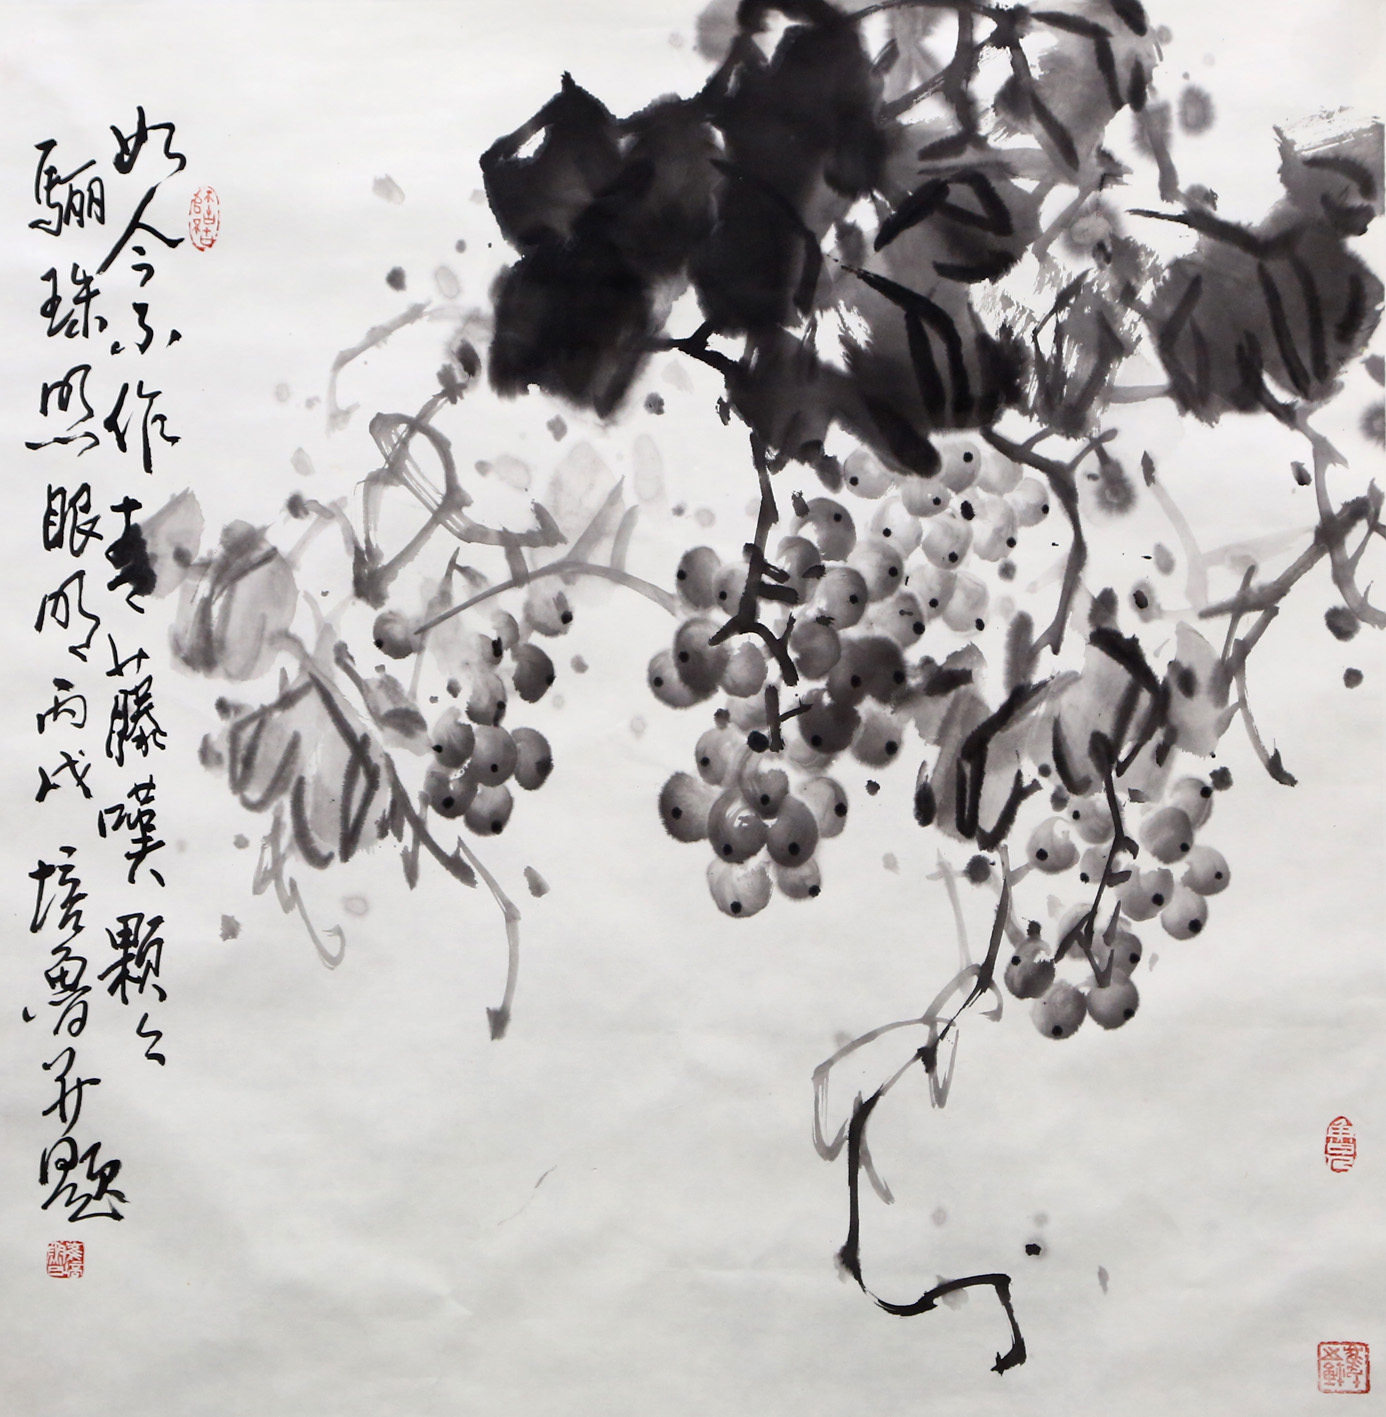 如今不作青藤嘆顆々
驪珠照眼明丙戌培魯并題